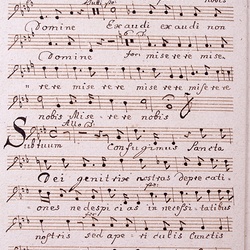 nobis
Domine Exaudi exaudi non
Domine for: miserere mis
rere miserere miserere miserere
nobis Miserere nobis
Allo
Sub tuum Confugimus Sancta
Dei genitrix nostras depreca ti
ones ne despicias in necessitatibus
nostris sed a periculis cunctis